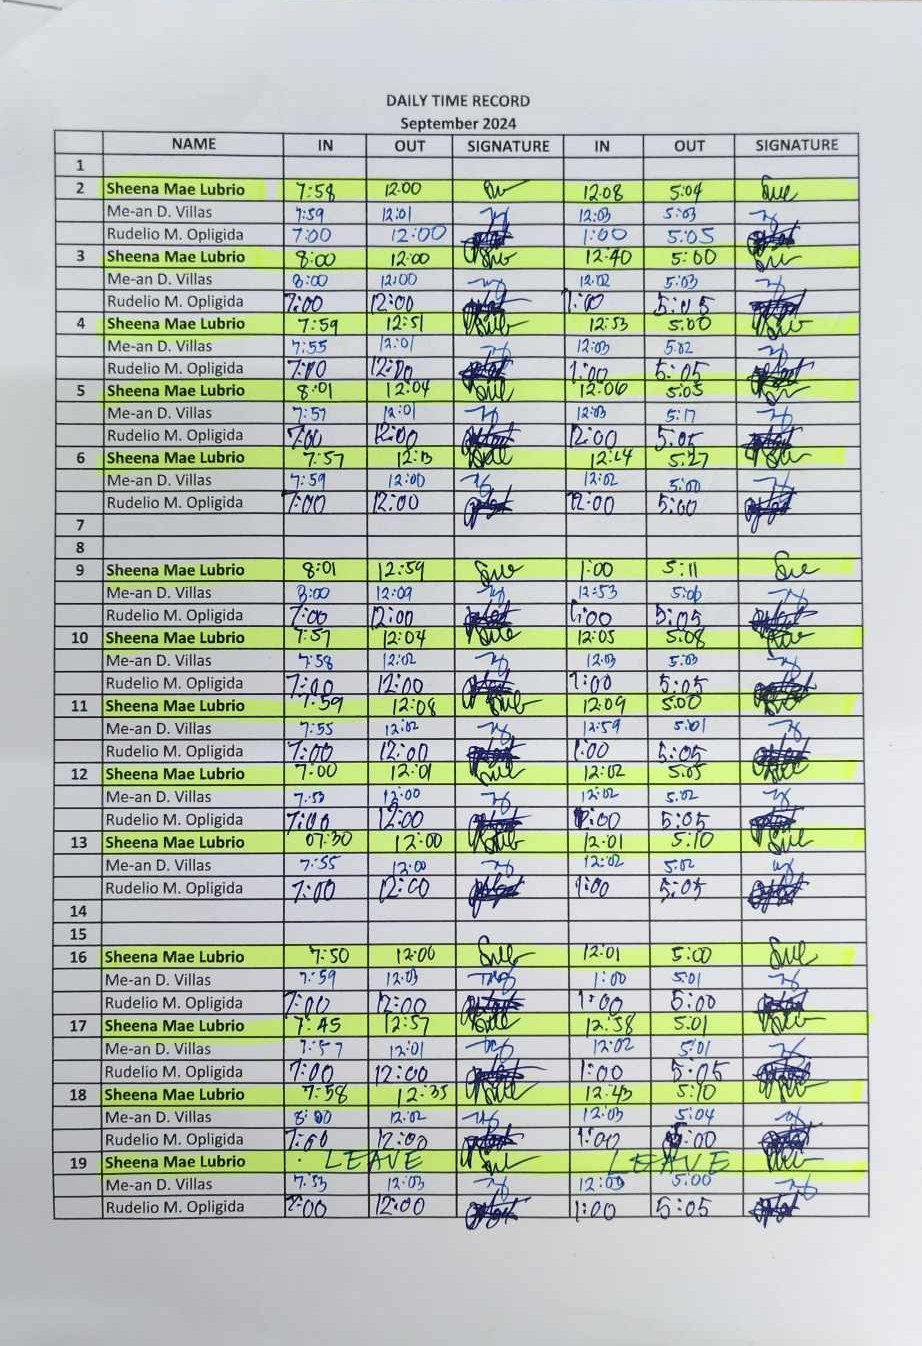 DAILY TIME RECORD
September 2024
NAME IN OUT SIGNATURE IN OUT SIGNATURE
1
2 Sheena Mae Lubrio 7:58 12:00 12:08 5:04
Me-an D. Villas 7:59 12:01 12:03 5:03
Rudelio M. Opligida 7:00 12:00 1:00 5:05
3 Sheena Mae Lubrio 8:00 12:00 12:40 5:00
Me-an D. Villas 8:00 12:00 12:02 5:03
Rudelio M. Opligida 7:00 12:00 1:00 5:05
4 Sheena Mae Lubrio 7:59 12:51 12:53 5:00
Me-an D. Villas 7:55 12:01 12:03 5:02
Rudelio M. Opligida 7:00 12:00 1:00 5:05
5 Sheena Mae Lubrio 8:01 12:04 12:06 5:05
Me-an D. Villas 7:57 12:01 12:03 5:17
Rudelio M. Opligida 7:00 12:00 12:00 5:05
6 Sheena Mae Lubrio 7:57 12:13 12:14 5:27
Me-an D. Villas 7:59 12:00 12:02 5:00
Rudelio M. Opligida 7:00 12:00 12:00 5:00
7
8
9 Sheena Mae Lubrio 8:01 12:59 1:00 5:11
Me-an D. Villas 8:00 12:09 12:53 5:06
Rudelio M. Opligida 7:00 12:00 1:00 5:05
10 Sheena Mae Lubrio 7:57 12:04 12:05 5:08
Me-an D. Villas 7:58 12:02 12:03 5:03
Rudelio M. Opligida 7:00 12:00 1:00 5:05
11 Sheena Mae Lubrio 7:59 12:08 12:09 5:00
Me-an D. Villas 7:55 12:02 12:59 5:01
Rudelio M. Opligida 7:00 12:00 1:00 5:05
12 Sheena Mae Lubrio 7:00 12:01 12:02 5:05
Me-an D. Villas 7:53 12:00 12:02 5:02
Rudelio M. Opligida 7:00 12:00 5:05
13 Sheena Mae Lubrio 07:30 12:00 12:01 5:10
Me-an D. Villas 7:55 12:00 12:02 5:02
Rudelio M. Opligida 7:00 12:00 1:00 5:05
14
15
16 Sheena Mae Lubrio 7:50 12:00 12:01 5:00
Me-an D. Villas 7:59 12:03 1:00 5:01
Rudelio M. Opligida 7:00 12:00 1:00 5:00
17 Sheena Mae Lubrio 7:45 12:57 12:58 5:01
Me-an D. Villas 7:57 12:01 12:02 5:01
Rudelio M. Opligida 7:00 12:00 1:00 5:05
18 Sheena Mae Lubrio 7:58 12:35 12:43 5:10
Me-an D. Villas 8:00 12:02 12:03 5:04
Rudelio M. Opligida 7:00 12:00 1:00 5:00
19 Sheena Mae Lubrio LEAVE LEAVE
Me-an D. Villas 7:53 12:03 12:03 5:00
Rudelio M. Opligida 7:00 12:00 1:00 5:05